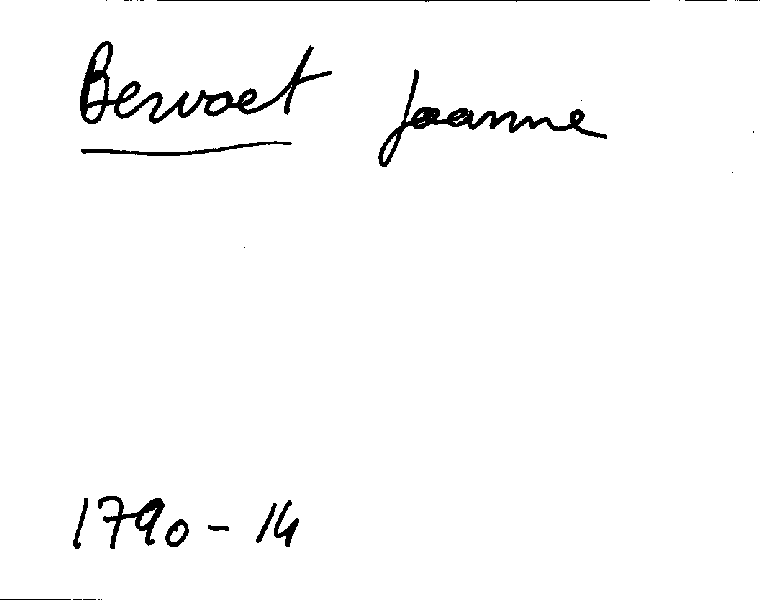 Bervoet Joanne
1790-14